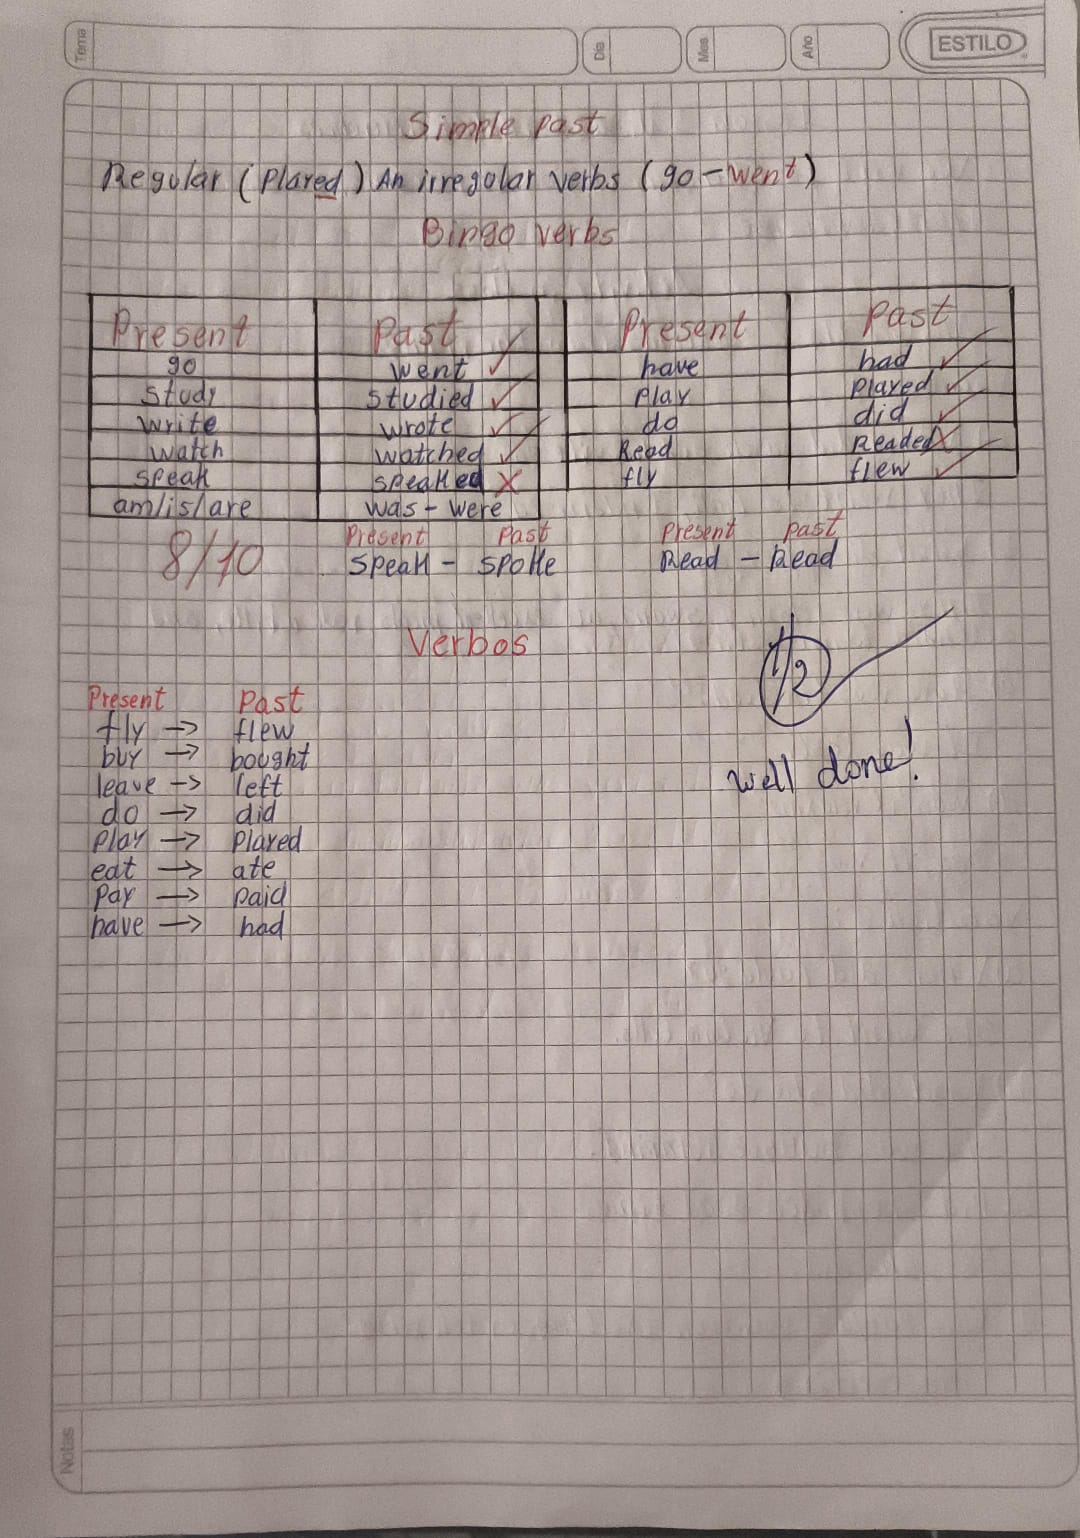 Tema Dia Mes Año ESTILO
Simple past
Regular (Played) An irregular verbs (go-went)
Bingo verbs
Present Past Present Past
go went ✓ have had ✓
study studied ✓ play played ✓
write wrote ✓ do did ✓
watch watched ✓ Read Readed X
speak speaked X fly flew ✓
am/is/are was - were
Present Past Present Past
8/10 speak - spoke Read - Read
Verbos
1/2
Present Past
fly → flew
buy → bought
well done!
leave → left
do → did
play → played
eat → ate
pay → paid
have → had
Notas